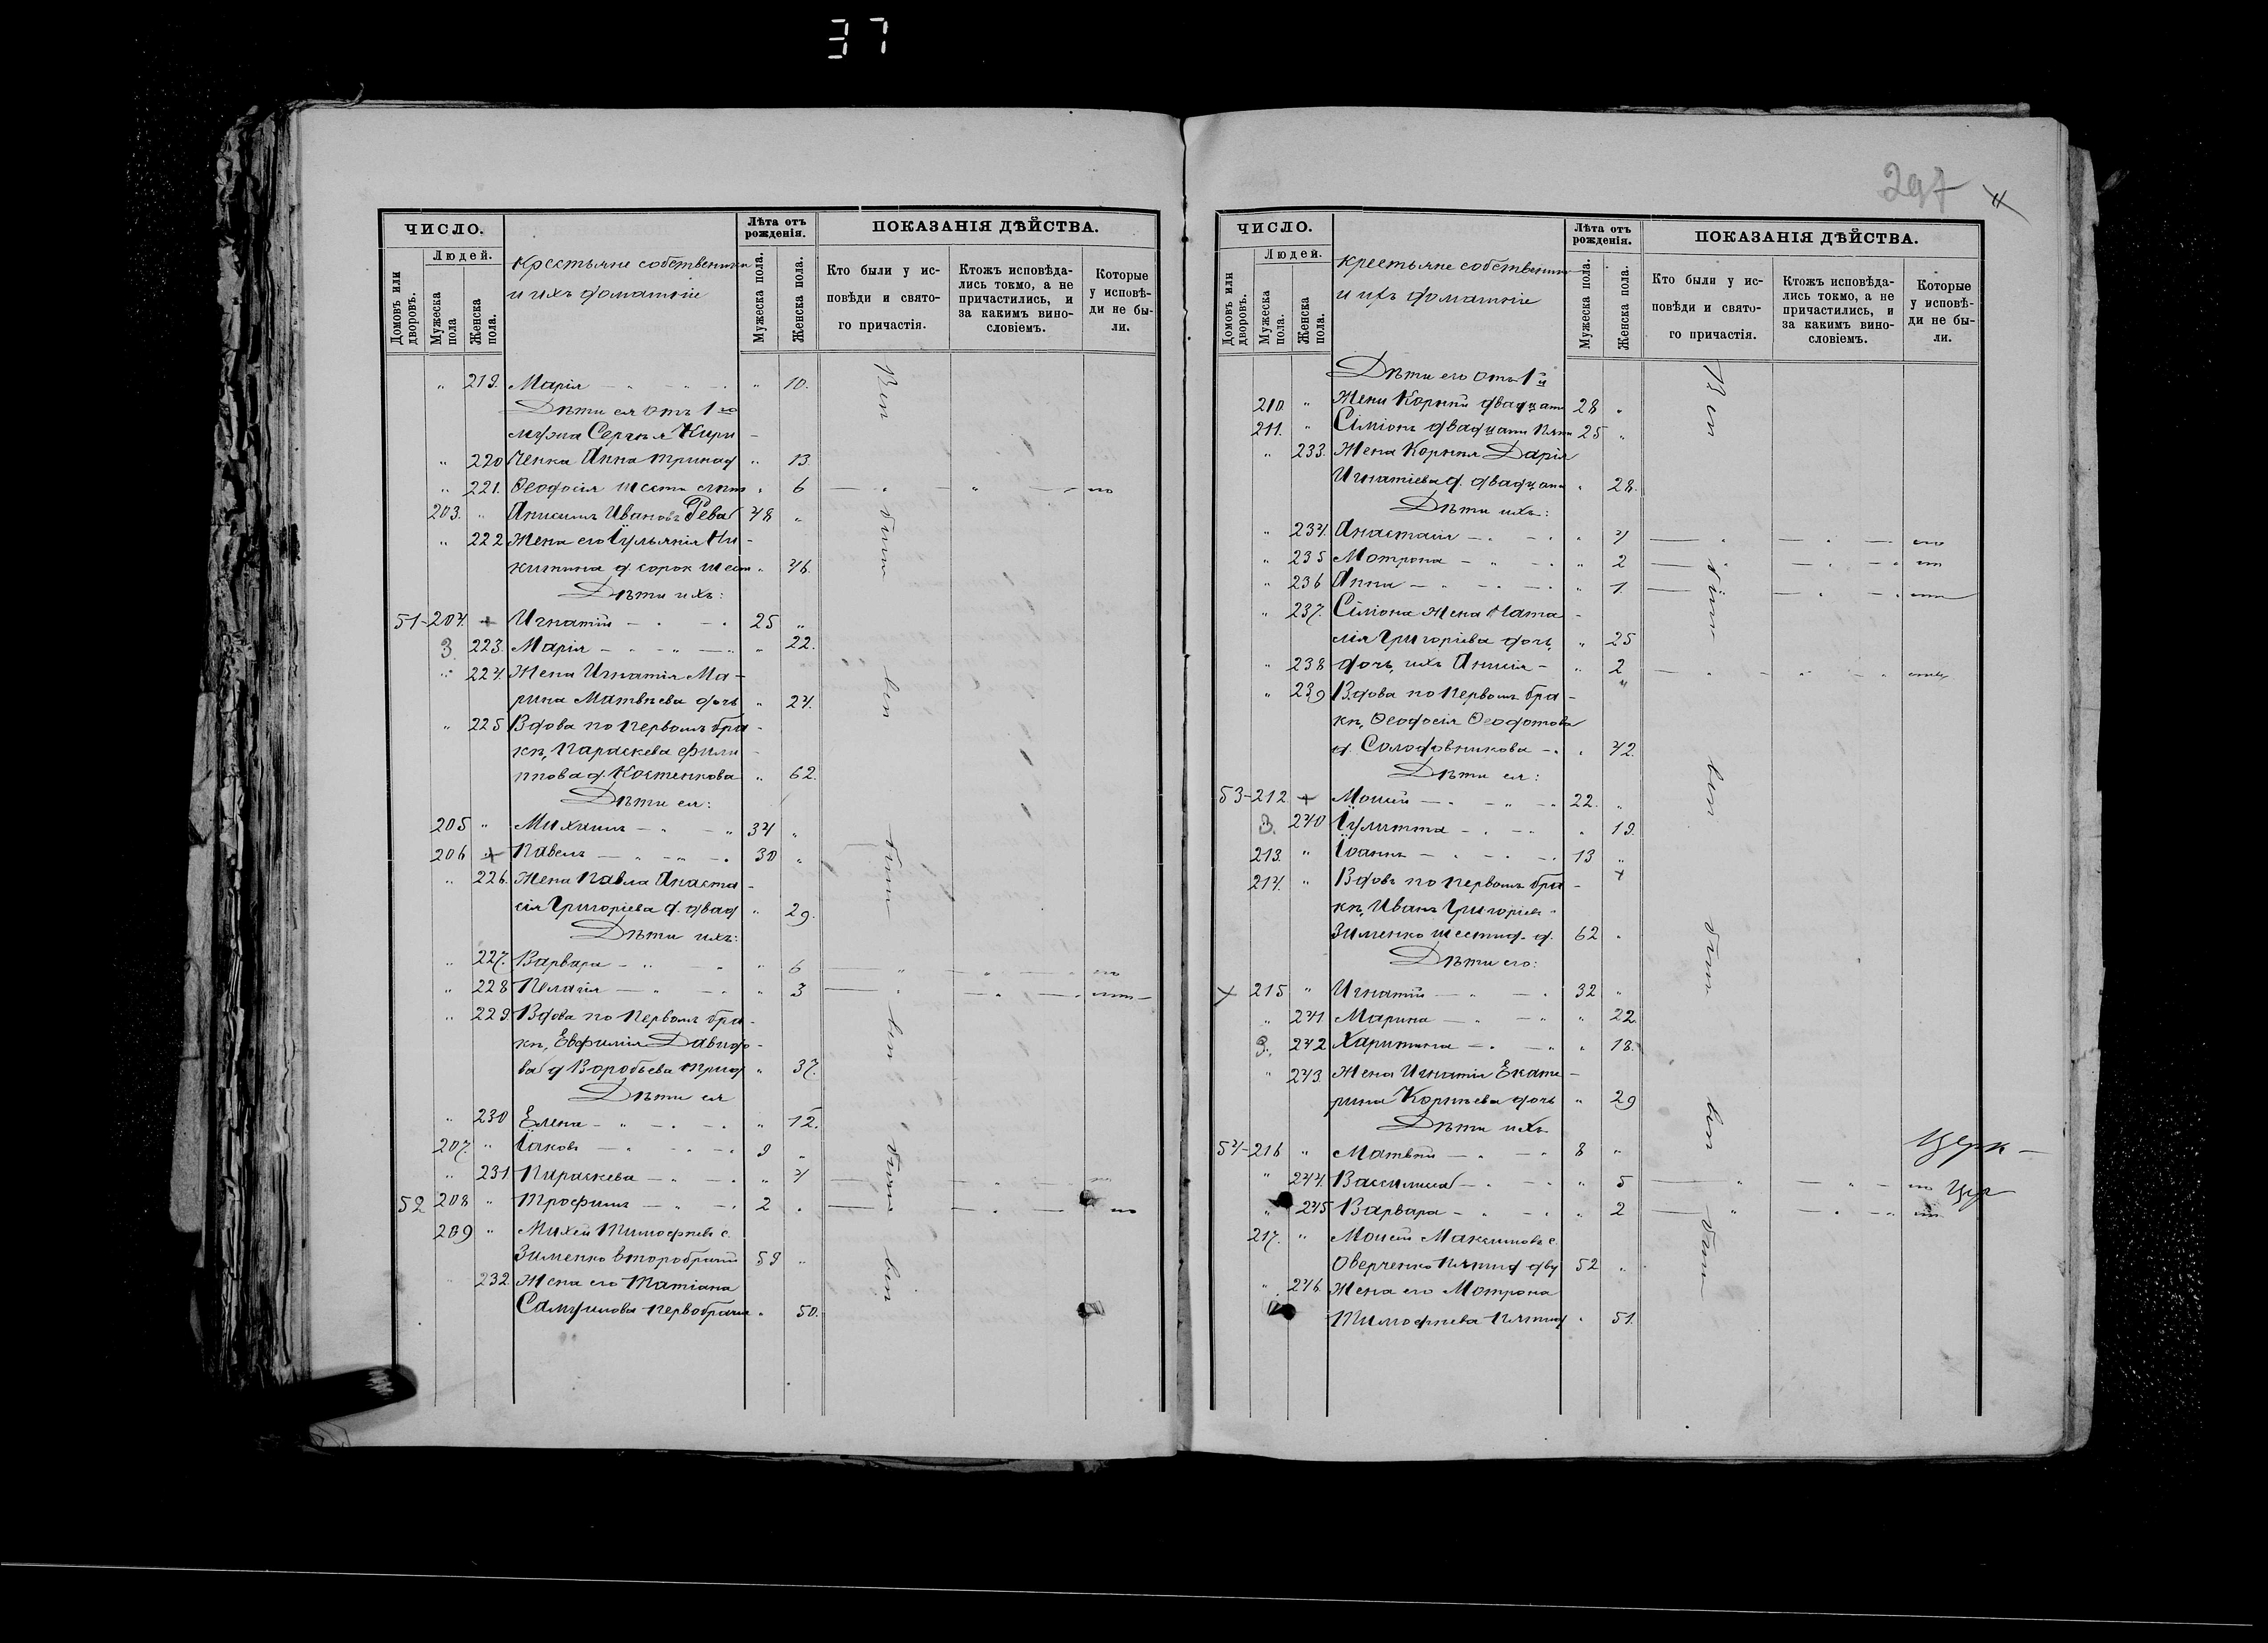 37
297
ЧИСЛО.
Людей.
Домовъ или дворовъ.
Мужеска пола
Женска пола.
Крестьяне собственники
и ихъ домашніе
Лѣта отъ рожденія.
Мужеска пола.
Женска пола.
ПОКАЗАНІЯ ДѢЙСТВА.
Кто были у исповѣди и святого причастія.
Ктожъ исповѣдались токмо, а не причастились, и за какимъ винословіемъ.
Которые у исповѣди не были.
" 219. Марія — " — " 10.
Дѣти ея отъ 1го
мужа Сергѣя Кири -
" 220 ченка Анна тринад " 13.
" 221. Ѳеодосія шести " 6
203. " Анисимъ Ивановъ Рева 48 "
" 222 Жена его Іульянія Ни -
китина д. сорок шест " 46.
Дѣти ихъ:
51-204. + Игнатій — 25 "
3 223. Марія — " 22.
" 224. Жена Игнатія Ма -
рина Матвѣева дочь " 24.
" 225 Вдова по первомъ бра -
кѣ, Параскева Фили -
ппова д. Костенкова " 62.
Дѣти ея:
205 " Михаилъ — 34 "
206 + Павелъ — 30 "
" 226. Жена Павла Анаста -
сія Григоріева д. двад " 29.
Дѣти ихъ:
" 227. Варвара — " 6
" 228 Пелагія — " 3
" 229 Вдова по первомъ бра -
кѣ, Евфимія Давидо -
ва д Воробьева трид " 37.
Дѣти ея
" 230 Елена — " 12.
207. " Іаковъ — 9 "
" 231 Параскева — " 4
52 208 " Трофимъ — 2 "
209 " Михей Тимофѣевъ с.
Зименко второбрачный 59 "
232. Жена его Татіана
Самуилова первобрачн " 50.
Всѣ были всѣ были всѣ были всѣ
ЧИСЛО.
Людей.
Домовъ или дворовъ.
Мужеска пола.
Женска пола.
крестьяне собственники
и ихъ домашніе
Лѣта отъ рожденія.
Мужеска пола.
Женска пола.
ПОКАЗАНІЯ ДѢЙСТВА.
Кто были у исповѣди и святого причастія.
Ктожъ исповѣдались токмо, а не причастились, и за какимъ винословіемъ.
Которые у исповѣди не были.
Дѣти его отъ 1й
210. " Жены Корній двадцати 28 "
211. " Симіонъ двадцати пяти 25 "
" 233. Жена Корнія Дарія
Игнатіева д. двадцати " 28.
Дѣти ихъ:
" 234. Анастасія — " 4
" 235 Мотрона — " 2
" 236 Анна — " 1.
" 237. Симіона жена Ната -
лія Григоріева дочь, " 25
" 238 дочь, ихъ Анисія - " 2
" 239 Вдова по первомъ бра -
кѣ, Ѳеодосія Ѳеодотова
д. Солодовникова — " 42.
Дѣти ея:
53-212 + Моисей — 22. "
3. 240 Іулитта — " 19.
213. " Іоаннъ — 13 "
214. " Вдовъ по первомъ бра -
кѣ, Иванъ Григоріевъ
Зименко шестид. д. 62 "
Дѣти его:
+ 215 " Игнатій — 32 "
" 241 Марина — " 22.
3. 242 Харитина — " 18.
" 243. Жена Игнатія Екате -
рина Корнѣева дочь " 29
Дѣти ихъ
54-216 " Матвѣй — 8 "
" 244. Василиса — " 5
" 245 Варвара — " 2
217. " Моисей Максимовъ с.
Оверченко пятид дву 52 "
" 246. Жена его Мотрона
Тимофѣева пятид " 51.
Всѣ были всѣ были всѣ были